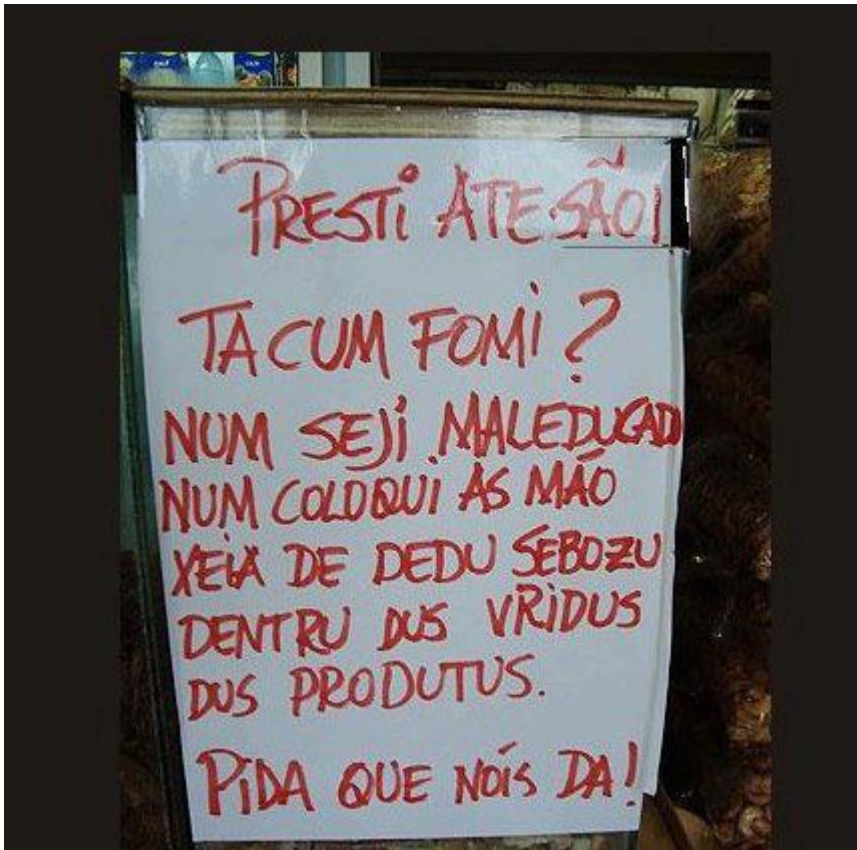 PRESTI ATESÃO!
TA CUM FOMI?
NUM SEJI MALEDUCADU
NUM COLOQUI AS MÃO
XEIA DE DEDU SEBOZU
DENTRU DUS VRIDUS
DUS PRODUTUS.
PIDA QUE NOÍS DA!